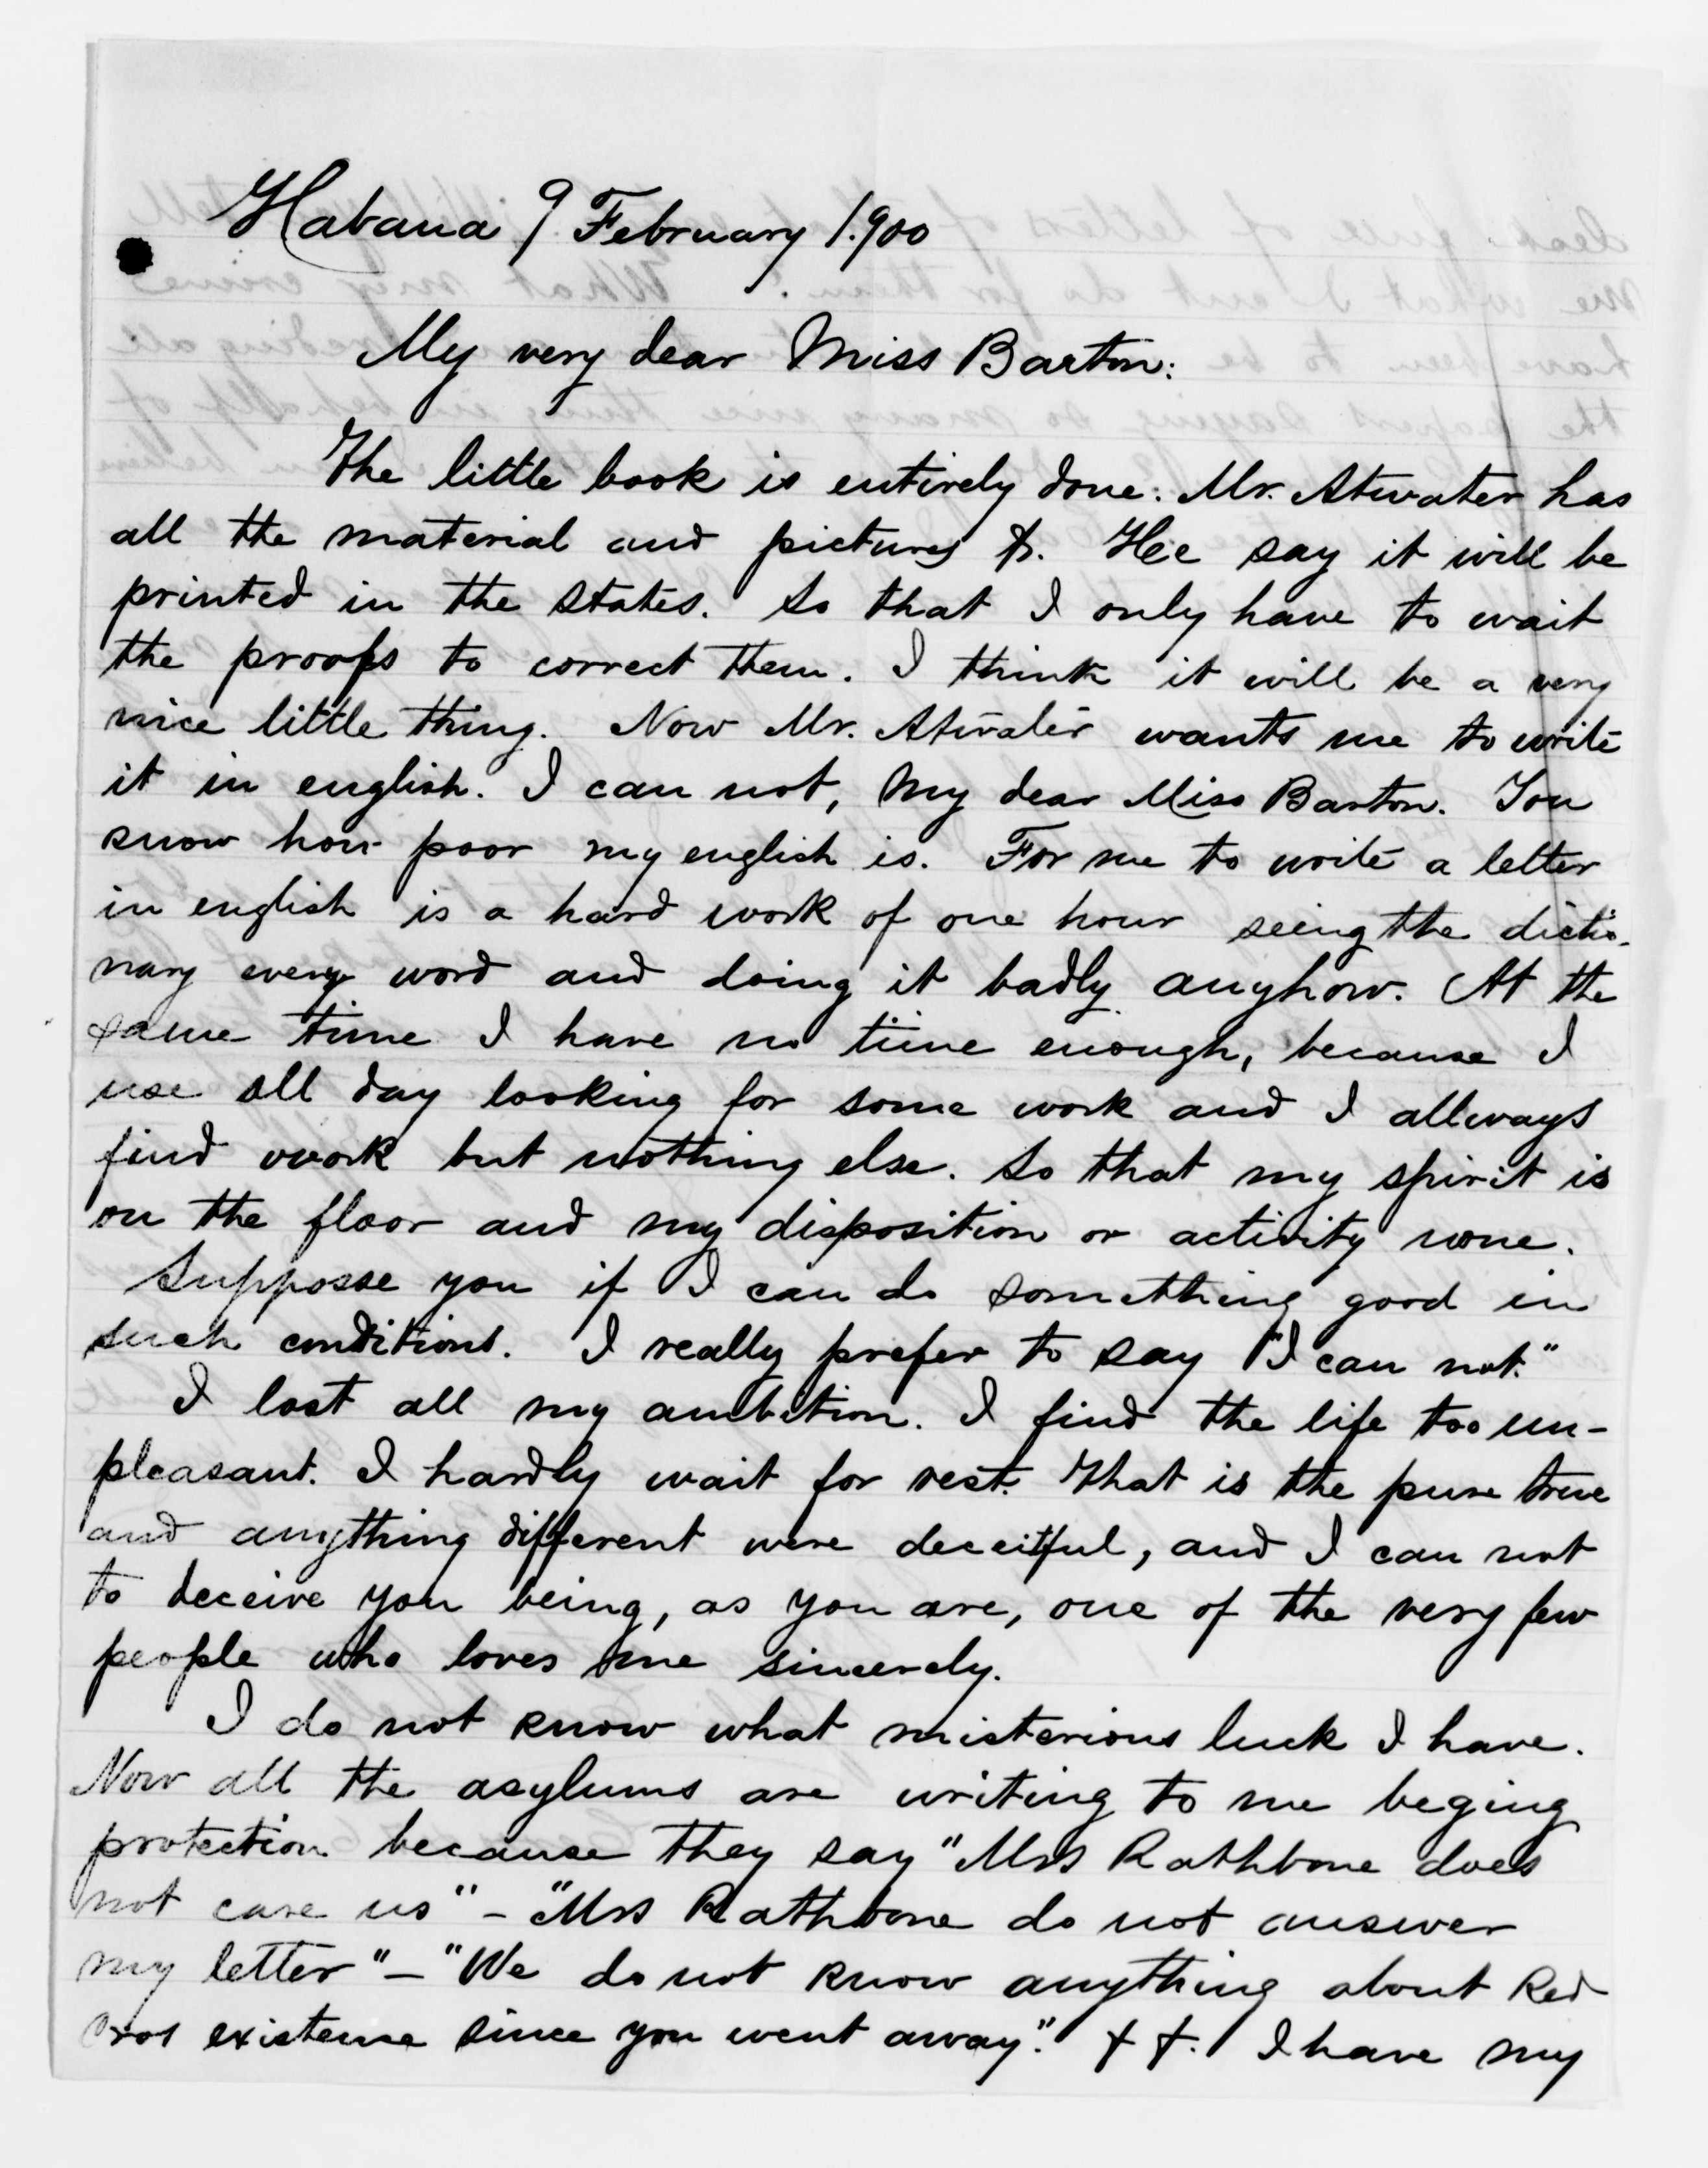 Habana 9 February 1.900
My very dear Miss Barton:
The little book is entirely done: Mr. Atwater has
all the material and pictures &. Hee say it will be
printed in the states. So that I only have to wait
the proofs to correct them. I think it will be a very
nice little thing. Now Mr. Atwater wants me to write
it in english. I can not, My dear Miss Barton. You
know how poor my english is. For me to write a letter
in english is a hard work of one hour seeing the dictio-
nary every word and doing it badly anyhow. At the
same time I have no time enough, because I
use all day looking for some work and I allways
find work but nothing else. So that my spirit is
on the floor and my disposition or activity none.
Supposse you if I can do something good in
such conditions. I really prefer to say "I can not."
I lost all my ambition. I find the life too un-
pleasant. I hardly wait for rest. That is the pure true
and anything different were deceitful, and I can not
to deceive you being, as you are, one of the very few
people who loves me sincerely.
I do not know what misterious luck I have.
Now all the asylums are writing to me beging
protection because they say "Mrs Rathbone does
not care us" - "Mrs Rathbone do not answer
my letter" - "We do not know anything about Red
Cros existence since you went away." & &. I have my